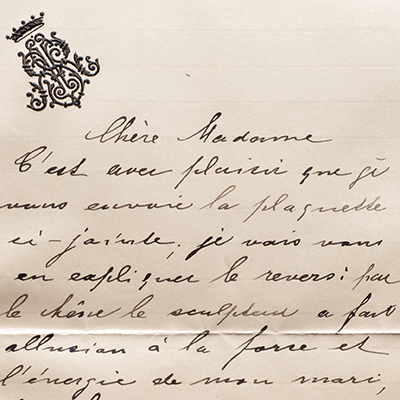 Chère Madame
C'est avec plaisir que je
vous envoie la plaquette
ci-jointe, je vais vous
en expliquer le revers: par
le chêne le sculpteur a fait
allusion à la force et
l'énergie de mon mari,